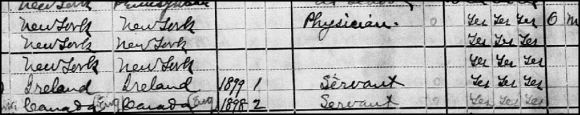 New York
New York New York Physician. 0 Yes Yes Yes O M
New York New York Yes Yes Yes
New York New York Yes Yes Yes
Ireland Ireland 1899 1 Servant 0 Yes Yes Yes
Canada Eng Canada Eng 1898 2 Servant 0 Yes Yes Yes